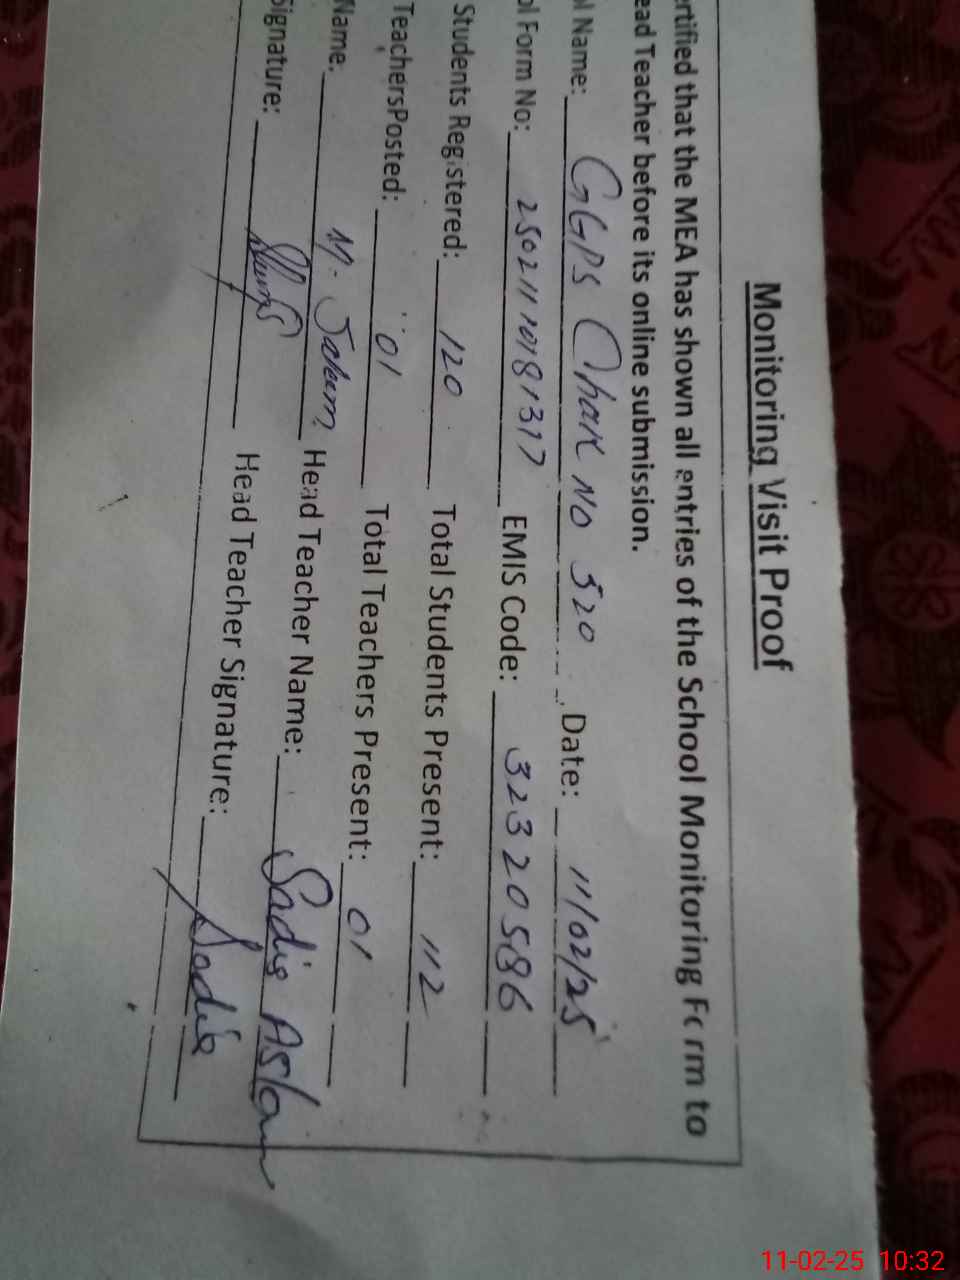 Monitoring Visit Proof
ertified that the MEA has shown all entries of the School Monitoring Form to
ead Teacher before its online submission.
ol Name: GGPS Chak No 520 Date: 11/02/25
ol Form No: EMIS Code: 32320586
Students Registered: 120 Total Students Present: 112
TeachersPosted: 01 Total Teachers Present: 01
Name: M. Head Teacher Name: Aslam
Signature: Head Teacher Signature:
11-02-25 10:32